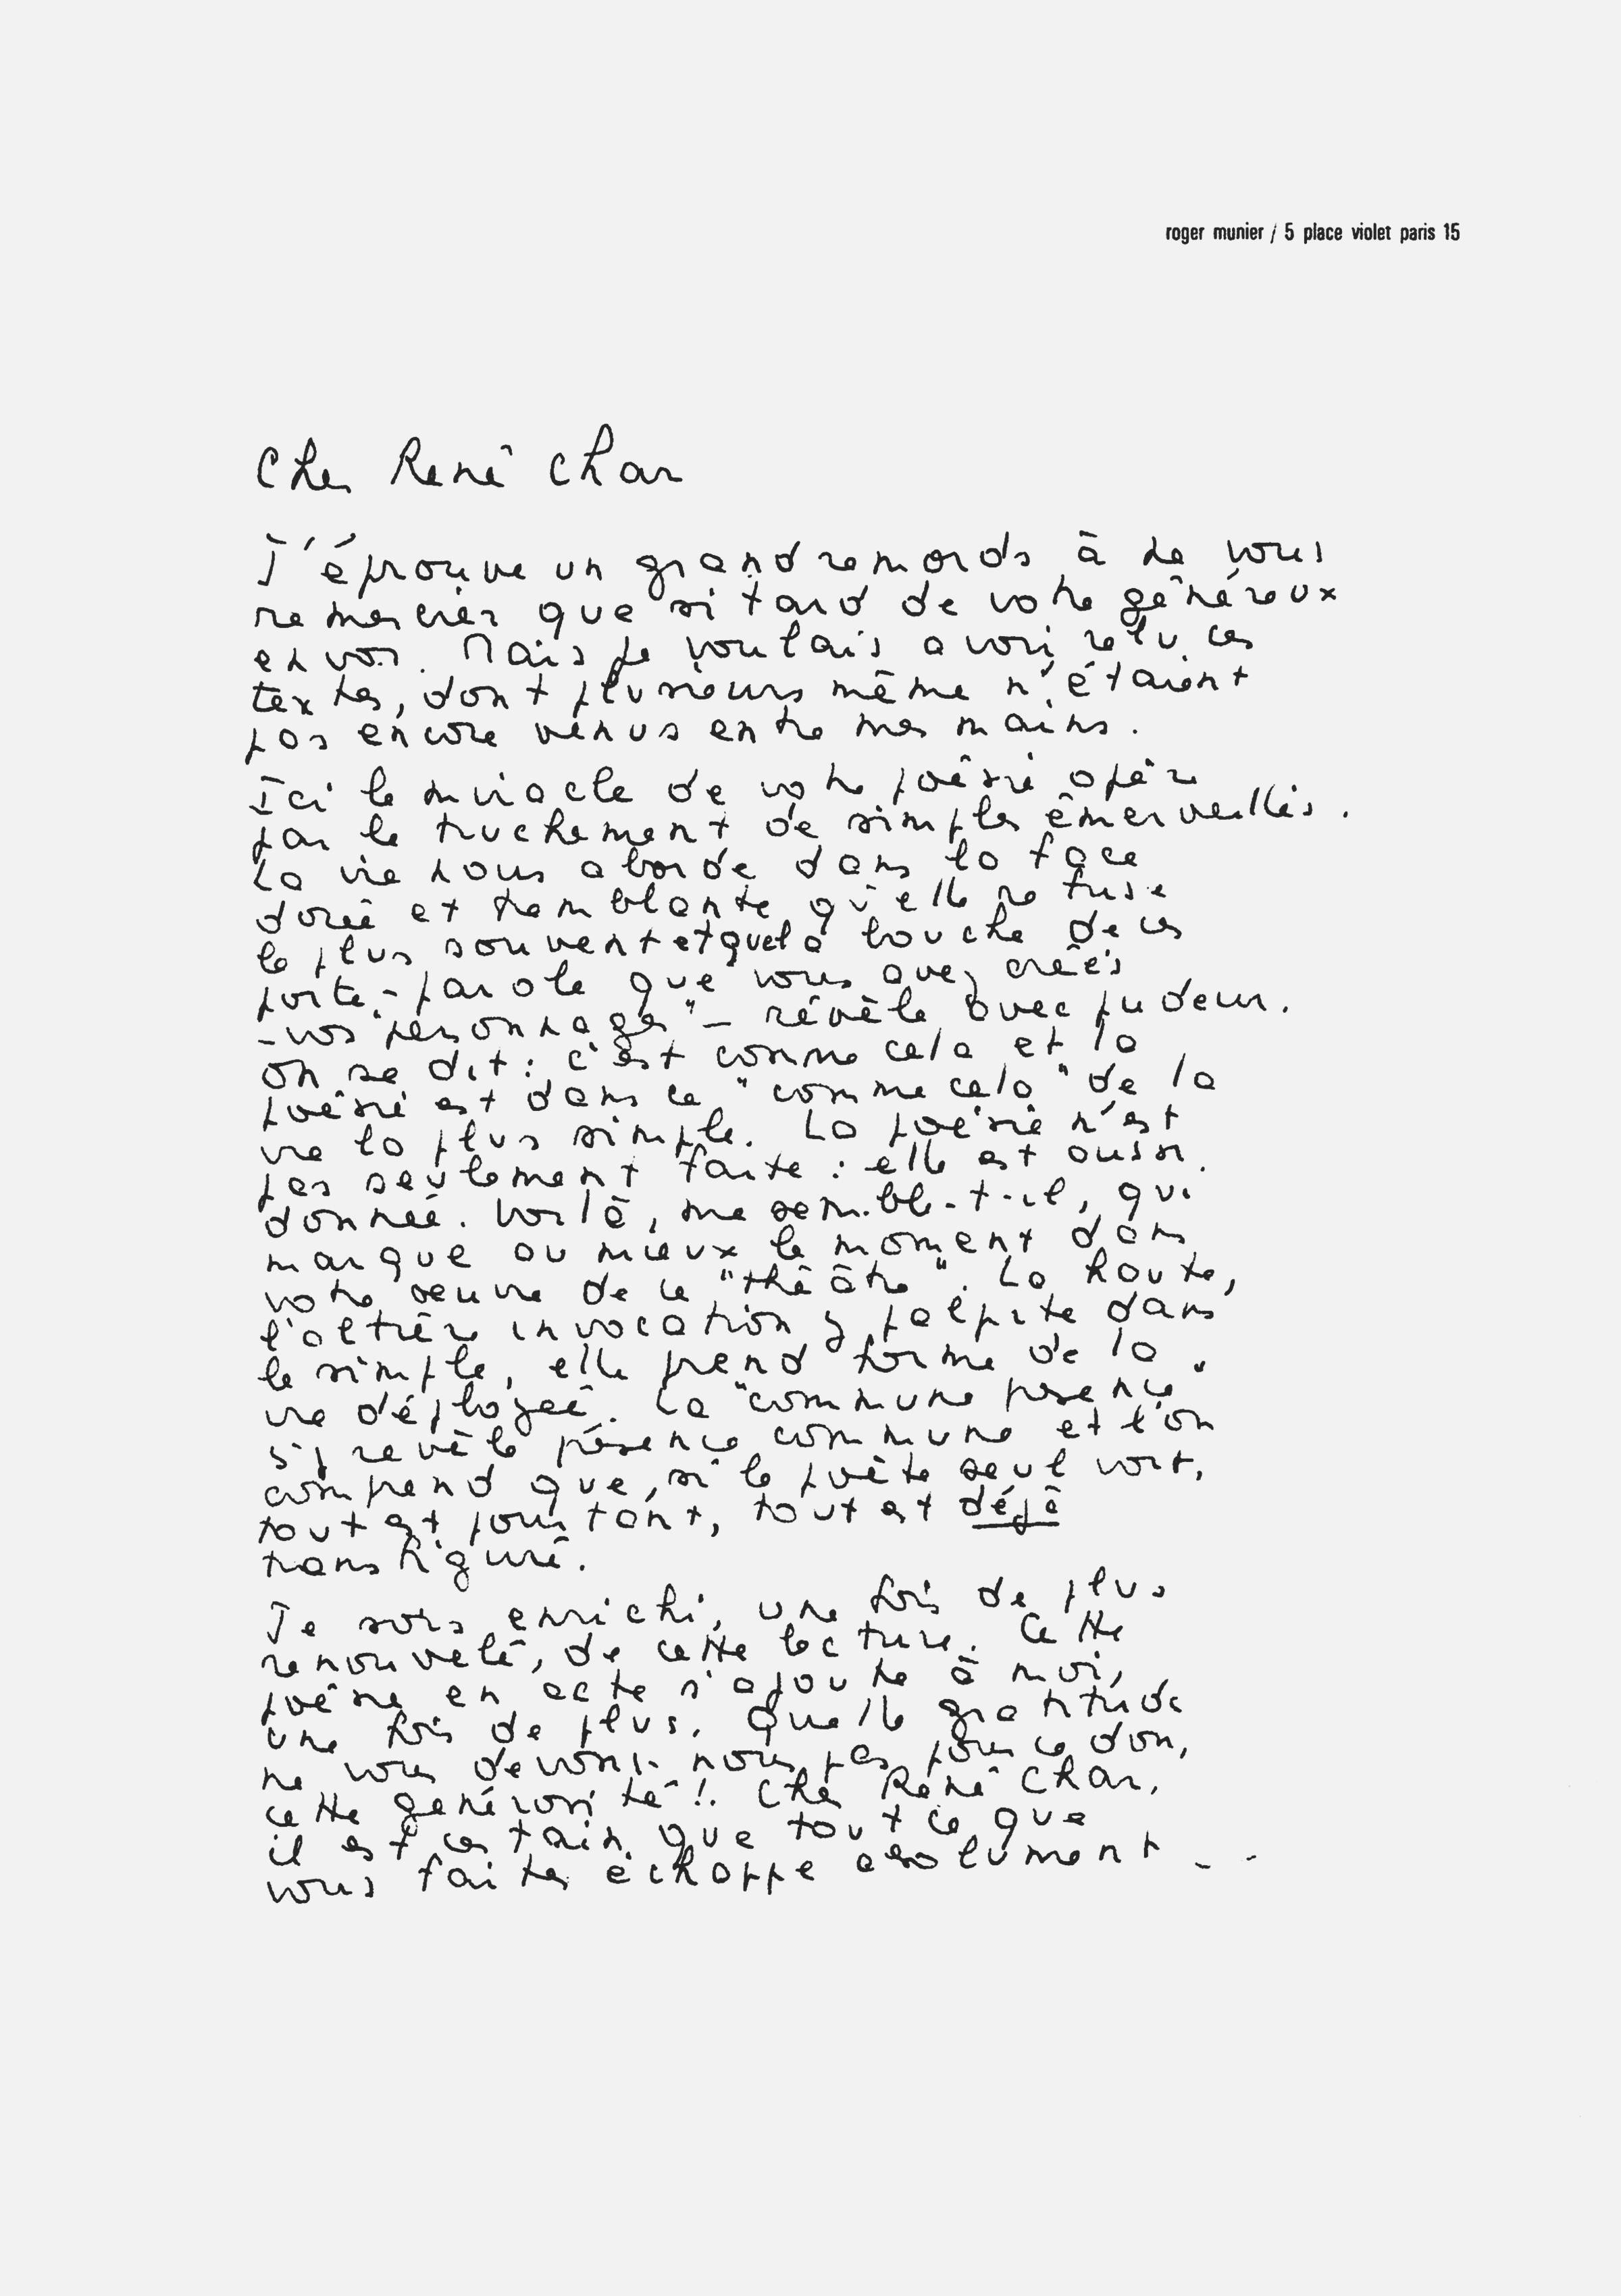 roger munier / 5 place violet paris 15
Cher René Char
J'éprouve un grand remords à ne vous
remercier que si tard de votre généreux
envoi. Mais je voulais avoir relu ces
textes, dont plusieurs même n'étaient
pas encore venus entre mes mains.
Ici le miracle de votre poésie opère
par le truchement de simples émerveillés.
La vie nous aborde dans la face
dorée et tremblante qu'elle refuse
le plus souvent et que la bouche de ces
porte-parole que vous avez créés
- vos "personnages" - révèle avec pudeur.
On se dit : c'est comme cela et la
poésie est dans ce "comme cela" de la
vie la plus simple. La poésie n'est
pas seulement faite : elle est aussi
donnée. Voilà, me semble-t-il, qui
marque au mieux le moment dans
votre oeuvre de ce "théâtre". La haute,
l'altière invocation y palpite dans
le simple, elle prend forme de la
vie déployée. La "commune présence"
s'y révèle présence commune et l'on
comprend que, si le poète seul voit,
tout est pourtant, tout est déjà
transfiguré.
Je sors enrichi, une fois de plus
renouvelé, de cette lecture. Cette
poésie en acte s'ajoute à moi,
une fois de plus. Quelle gratitude
ne vous devons-nous pas pour ce don,
cette générosité !. Cher René Char,
il est certain que tout ce que
vous faites échappe absolument - -